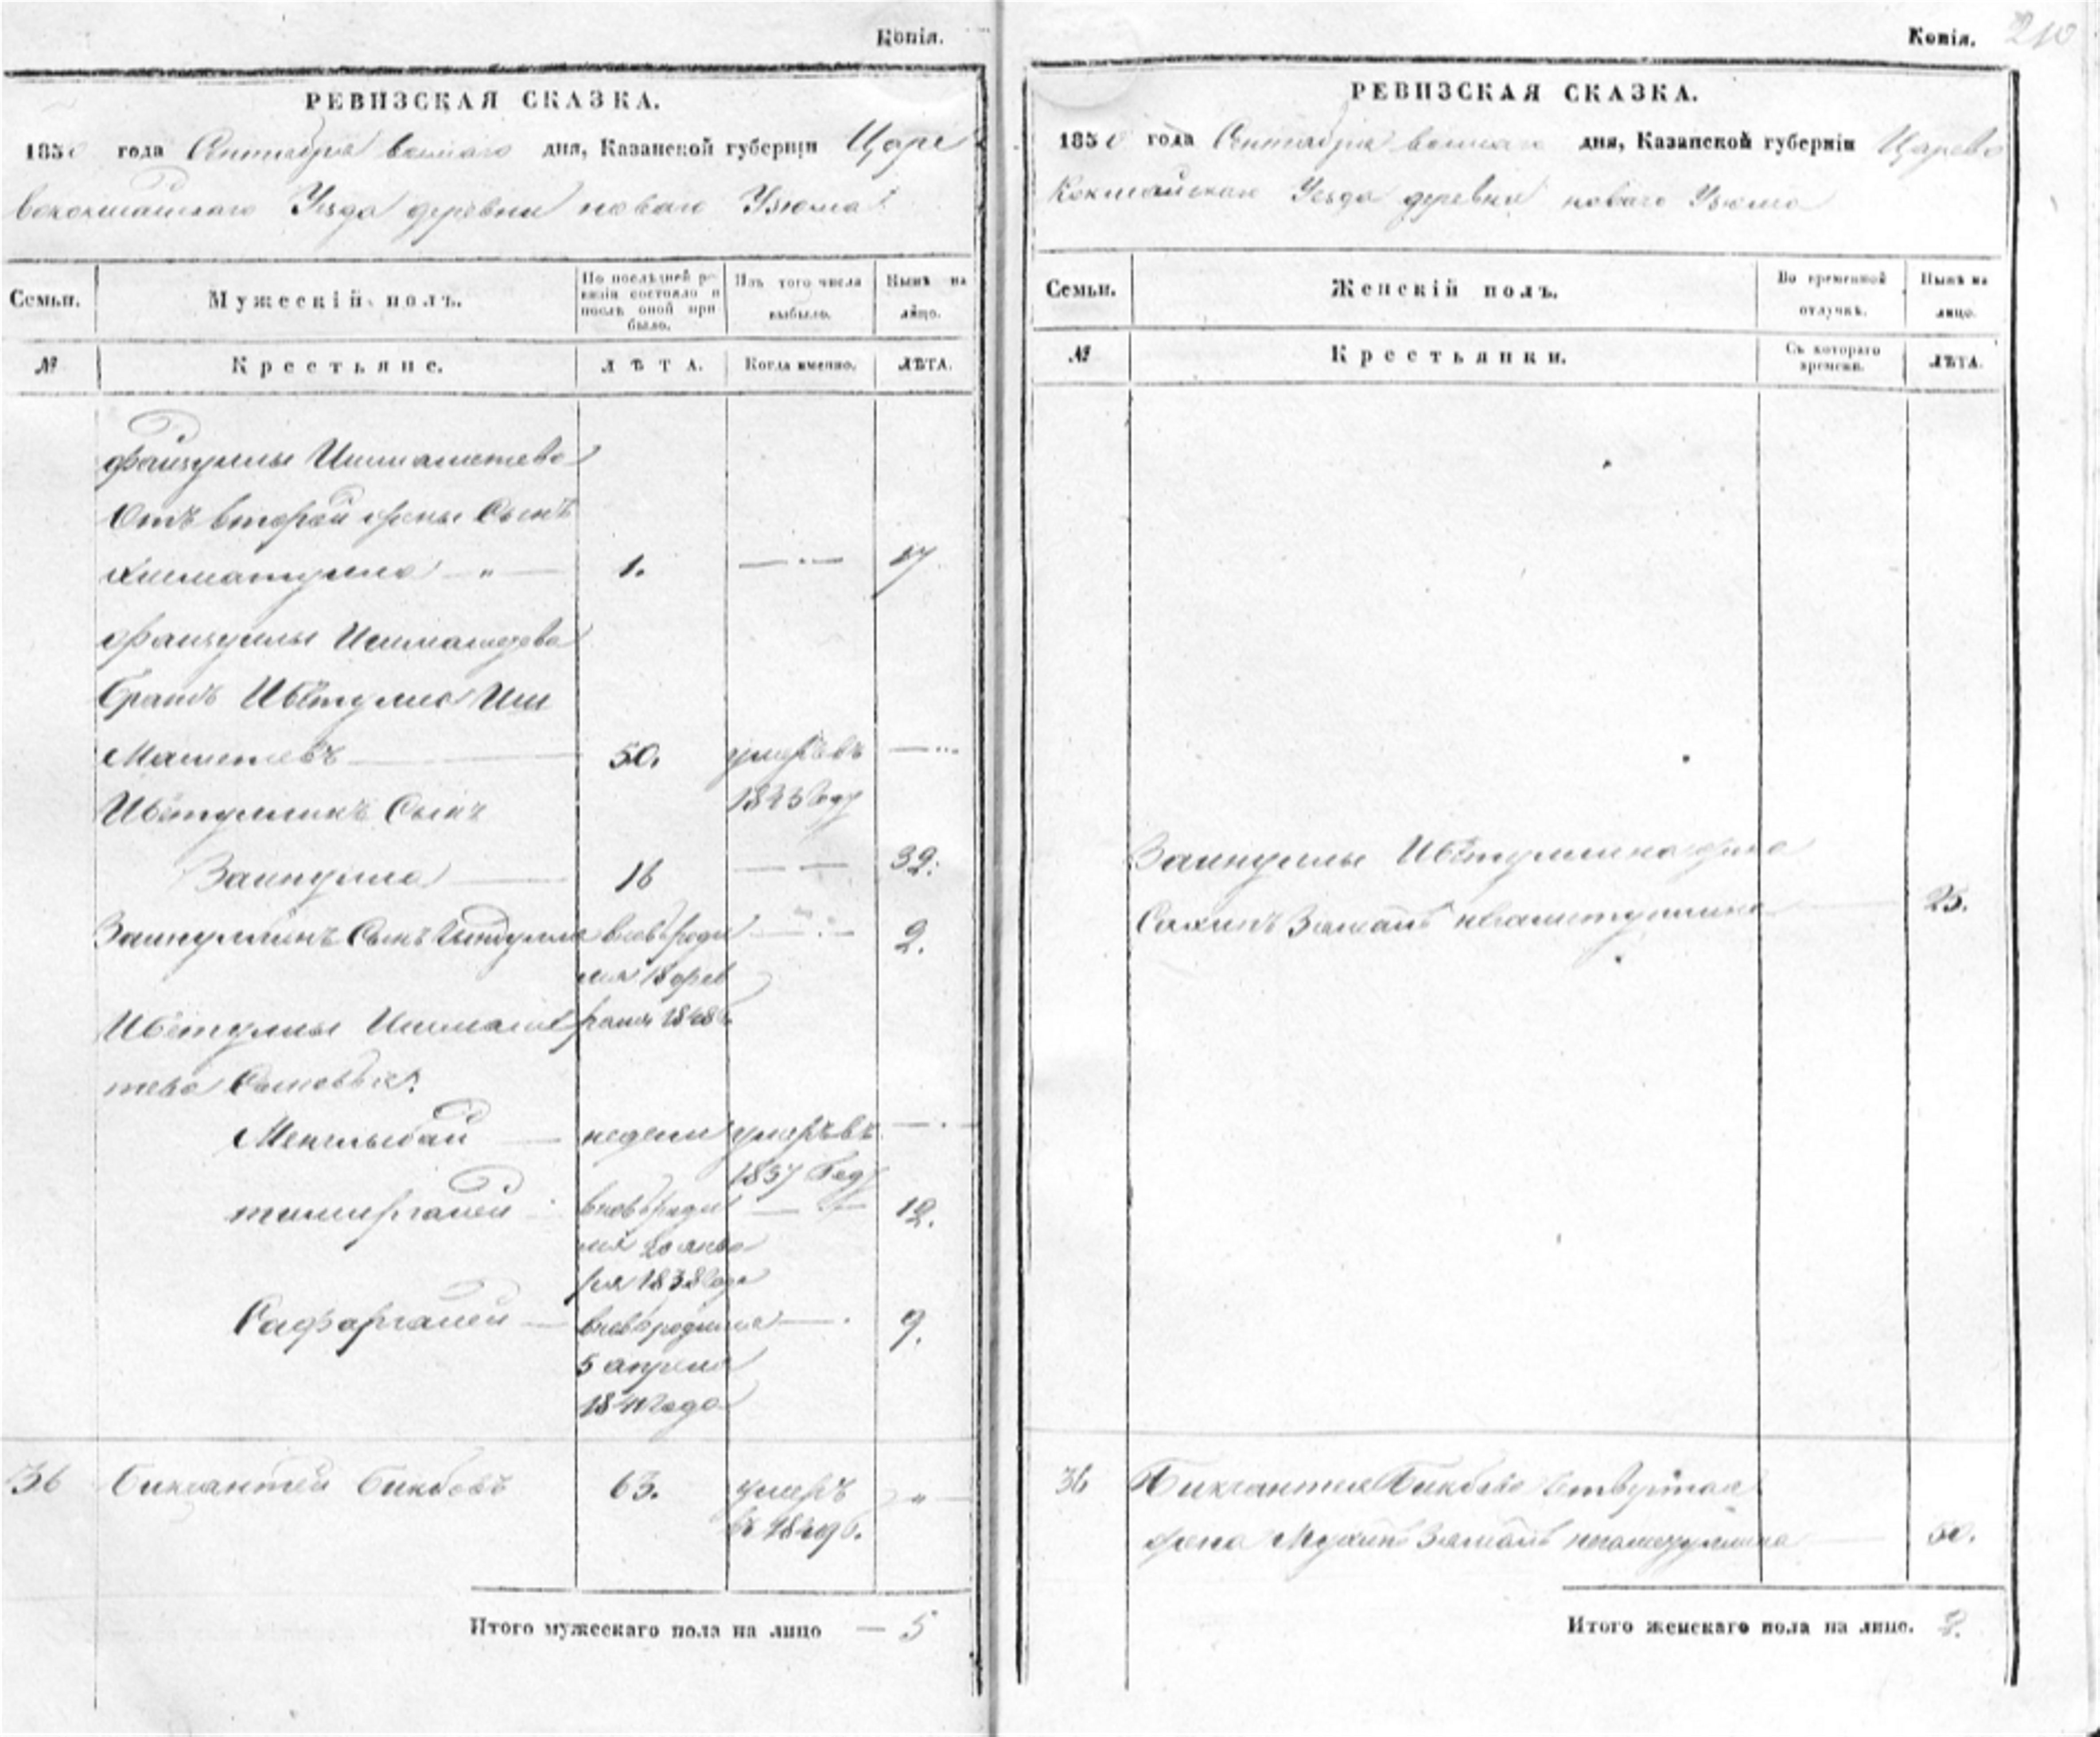 Копія.
РЕВИЗСКАЯ СКАЗКА.
1850 года Сентября дня, Казанской губерніи Царе
вококшайскаго Уезда деревни новаго Узюма
Семьи.
Мужескій полъ.
По послѣдней ре-
визіи состояло и
послѣ оной при-
было.
Изъ того числа
выбыло.
Нынѣ на
лицо.
№
Крестьяне.
ЛѢТА.
Когда именно.
ЛѢТА.
Файзуллы Ишмаметева
Отъ второй жены Сынъ
Хисматулла — „ — 1. — 17
Файзуллы Ишмаметева
Братъ Ибетулла Иш
Маметевъ — 50. умеръ въ
1843 году
Ибетуллинъ Сынъ
Заинулла — 16 — — 32.
Заинуллинъ Сынъ вновь роди — 2.
лся 18 фев
Ибетуллы Ишмаме раля 1848
тева Сыновья:
Менглыбай — недели умеръ въ —
1837 году
тимиргалей вновь роди — 12.
лся 20 янва
ря 1838 года
Сафаргалей — вновь родился — 9.
5 апреля
1841 года
36 Бикчантей Бикбовъ 63. умеръ „
въ 1849 г.
Итого мужескаго пола на лицо — 5
Копія. 210
РЕВИЗСКАЯ СКАЗКА.
1850 года Сентября дня, Казанской губерніи Царево
Кокшайскаго Уезда деревни новаго Узюма
Семьи.
Женскій полъ.
Во временной
отлучкѣ.
Нынѣ на
лицо.
№
Крестьянки.
Съ котораго
времени.
ЛѢТА.
Заинуллы Ибетуллина жена
Сахипъ Замалъ — 25.
36 Бикчантея Бикбова
жена Мухипъ Замалъ — 50.
Итого женскаго пола на лицо. 2.